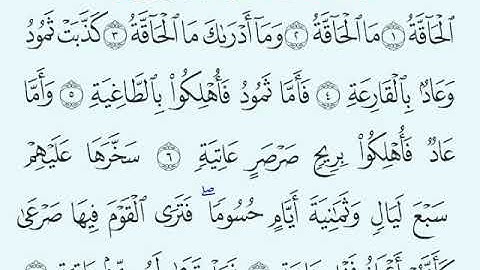 ٱلْحَآقَّةُ ١ مَا ٱلْحَآقَّةُ ٢ وَمَآ أَدْرَىٰكَ مَا ٱلْحَآقَّةُ ٣ كَذَّبَتْ ثَمُودُ
وَعَادٌۢ بِٱلْقَارِعَةِ ٤ فَأَمَّا ثَمُودُ فَأُهْلِكُوا۟ بِٱلطَّاغِيَةِ ٥ وَأَمَّا
عَادٌ فَأُهْلِكُوا۟ بِرِيحٍ صَرْصَرٍ عَاتِيَةٍ ٦ سَخَّرَهَا عَلَيْهِمْ
سَبْعَ لَيَالٍ وَثَمَٰنِيَةَ أَيَّامٍ حُسُومًاۖ فَتَرَى ٱلْقَوْمَ فِيهَا صَرْعَىٰ